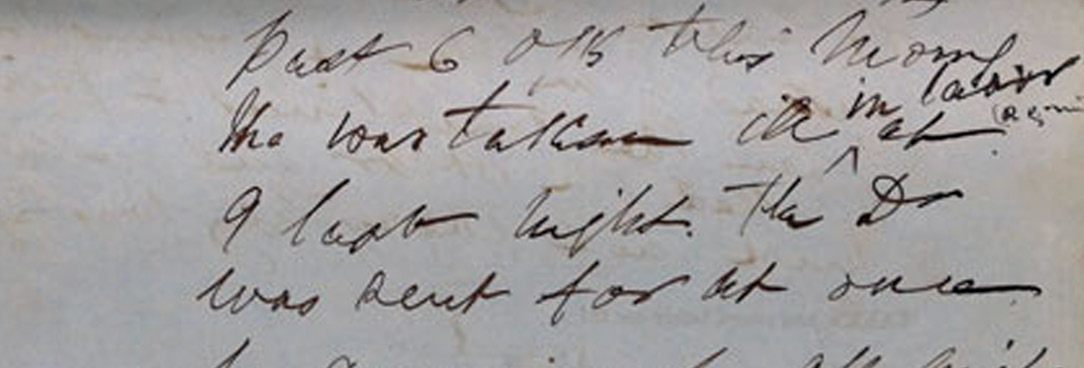 past 6 o'clk this Morng
She was taken ill in labor at
9 last night. The Dr
was sent for at once